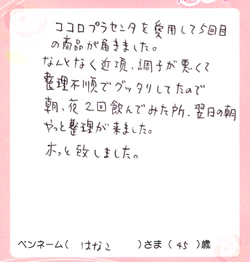 ココロプラセンタを愛用して5回目
の商品が届きました。
なんとなく近頃、調子が悪くて
整理不順でグッタリしてたので
朝、夜2回飲んでみた所、翌日の朝
やっと整理が来ました。
ホっと致しました。
ペンネーム( はなこ )さま( 45 )歳